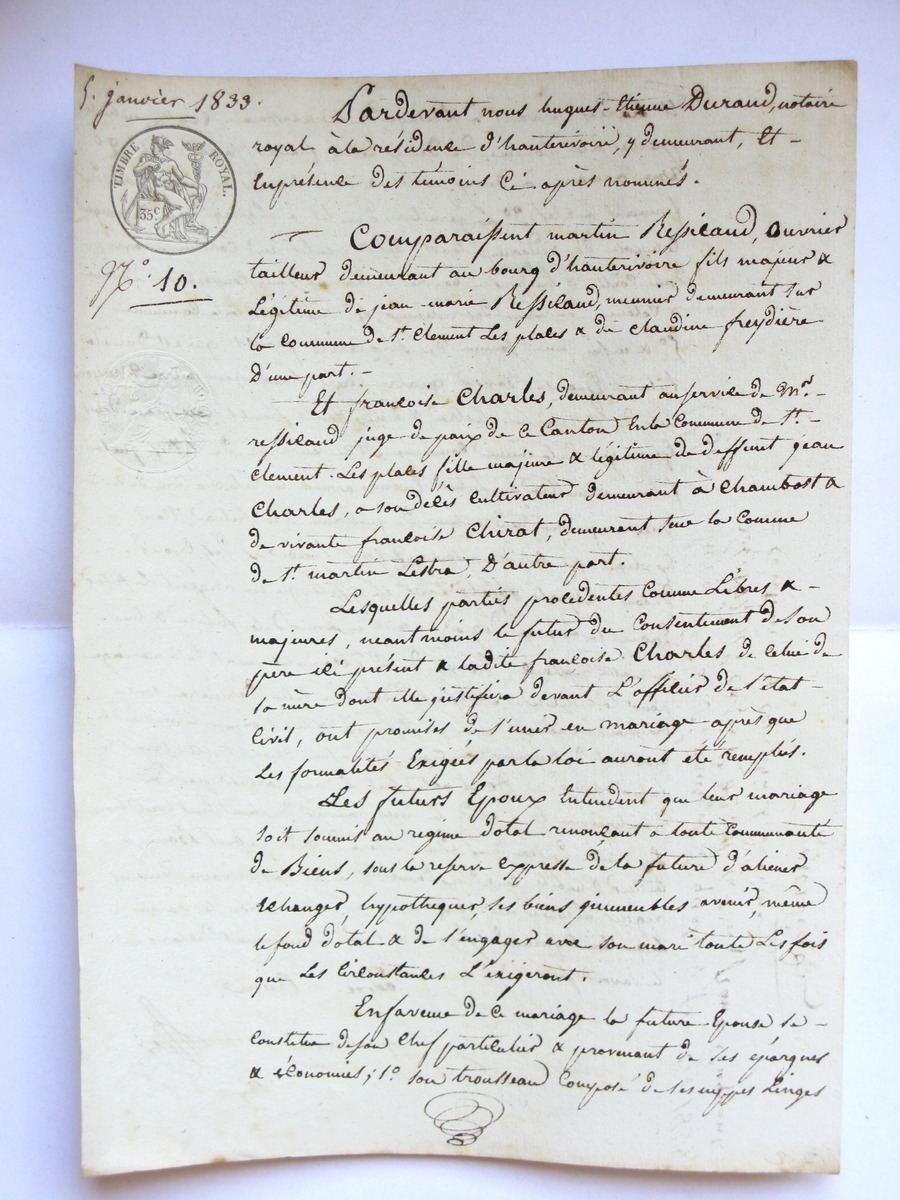 5. janvier 1833.
TIMBRE ROYAL.
35c
N.o 10.
Pardevant nous hugues-Etienne Durand, notaire
royal à la résidence d'hauterivoire, y demeurant, Et -
En présence des témoins Ci après nommés.
Comparaissent martin Ressicaud, ouvrier
tailleur demeurant au bourg d'hauterivoire fils majeur &
Légitime de jean-marie Ressicaud, meunier demeurant sur
la commune de St. Clement Les places & de claudine freydière
D'une part. -
Et françoise Charles, demeurant au service de Mr.
ressicaud juge de paix de ce Canton En la Commune de St.
Clement-Les places fille majeure & légitime de deffunt jean
Charles, a son décès Cultivateur demeurant à Chambost &
de vivante françoise Chirat, demeurant sur la Comune
de St. martin Lestra, D'autre part.
Lesquelles parties procèdentes Comme Libres & -
majeures, neantmoins le futur du Consentement de son
père ici présent & ladite françoise Charles de Celui de
sa mère dont elle justifiera devant L'officier de l'état -
Civil, ont promises de s'unir en mariage après que
Les formalités Exigées par la loi auront été remplies.
Les futurs Epoux Entendent que leur mariage
soit soumis au regime dotal renonçant a toute Communauté
de Biens, sous la reserve expresse de la future d'aliener
Echanger, hypothequer, ses biens immeubles avenir, même
le fond dotal & de s'engager avec son mari toute Les fois
que Les Circonstances L'exigeront.
En faveur de Ce mariage la future Epouse se -
Constitue de son Chef particulier & provenant de ses épargnes
& économies; 1o. son trousseau Composé de ses nippes Linges